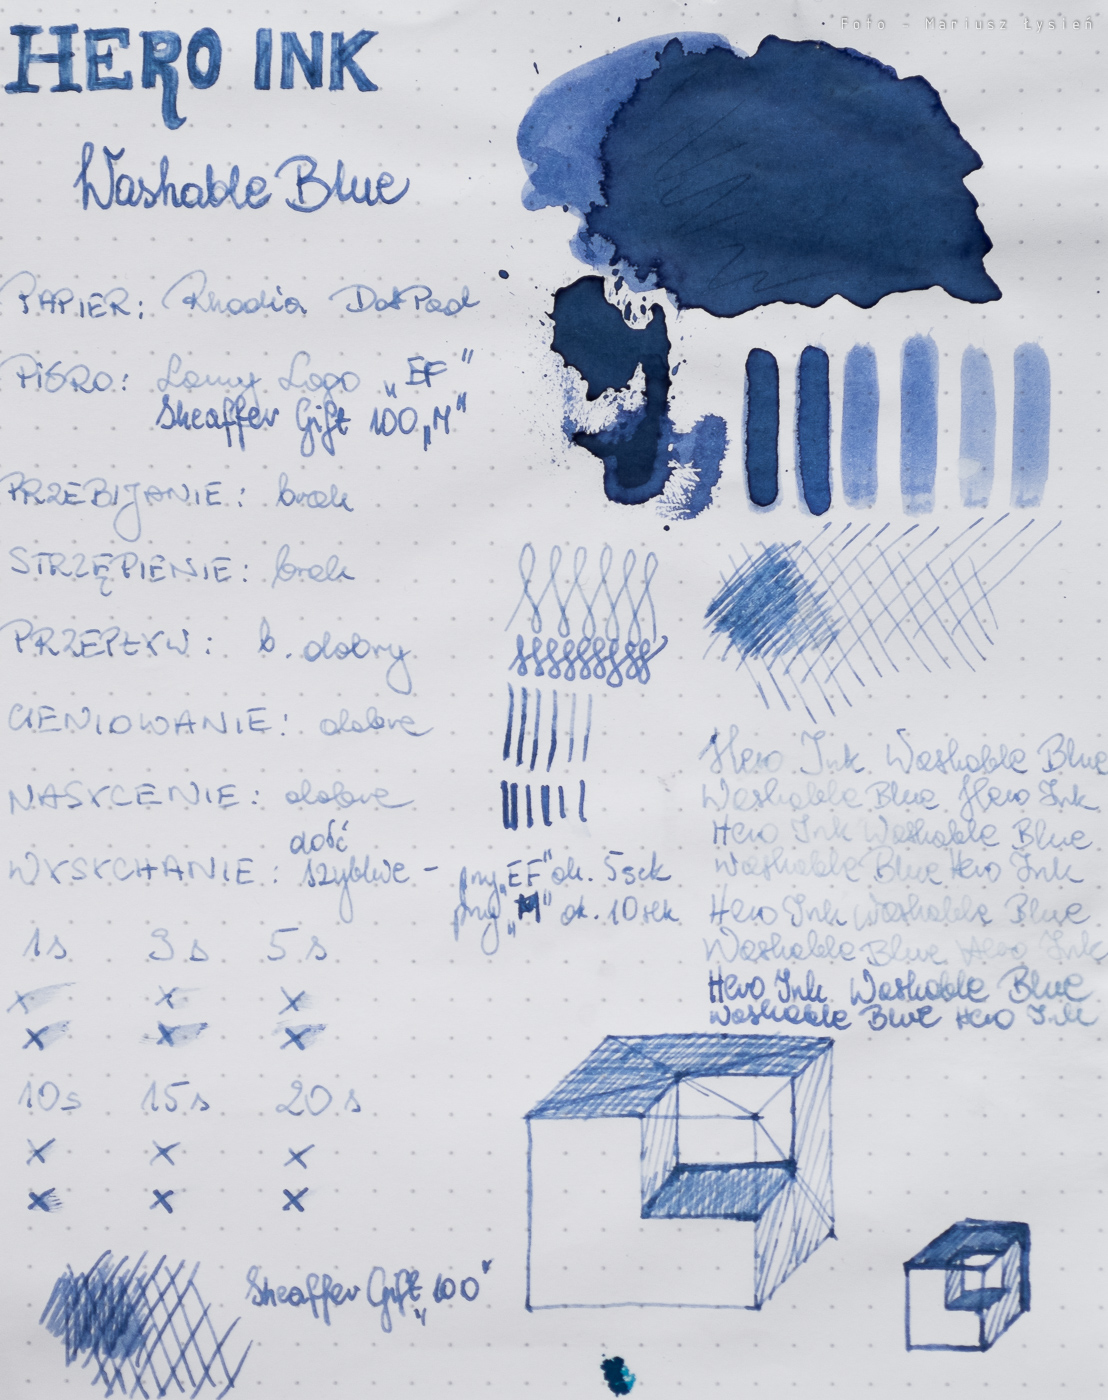 Foto - Mariusz Łysień
HERO INK
Washable Blue
PAPIER: Rhodia DotPad
PIÓRO: Lamy Logo „EF"
Sheaffer Gift 100 „M"
PRZEBIJANIE: brak
STRZĘPIENIE: brak
PRZEPŁYW: b. dobry
CIENIOWANIE: dobre
NASYCENIE: dobre
dość
WYSYCHANIE: szybkie - przy „EF" ok. 5sek
przy „M" ok. 10sek
1s 3s 5s
10s 15s 20s
Sheaffer Gift 100
Hero Ink Washable Blue
Washable Blue Hero Ink
Hero Ink Washable Blue
Washable Blue Hero Ink
Hero Ink Washable Blue
Washable Blue Hero Ink
Hero Ink Washable Blue
Washable Blue Hero Ink